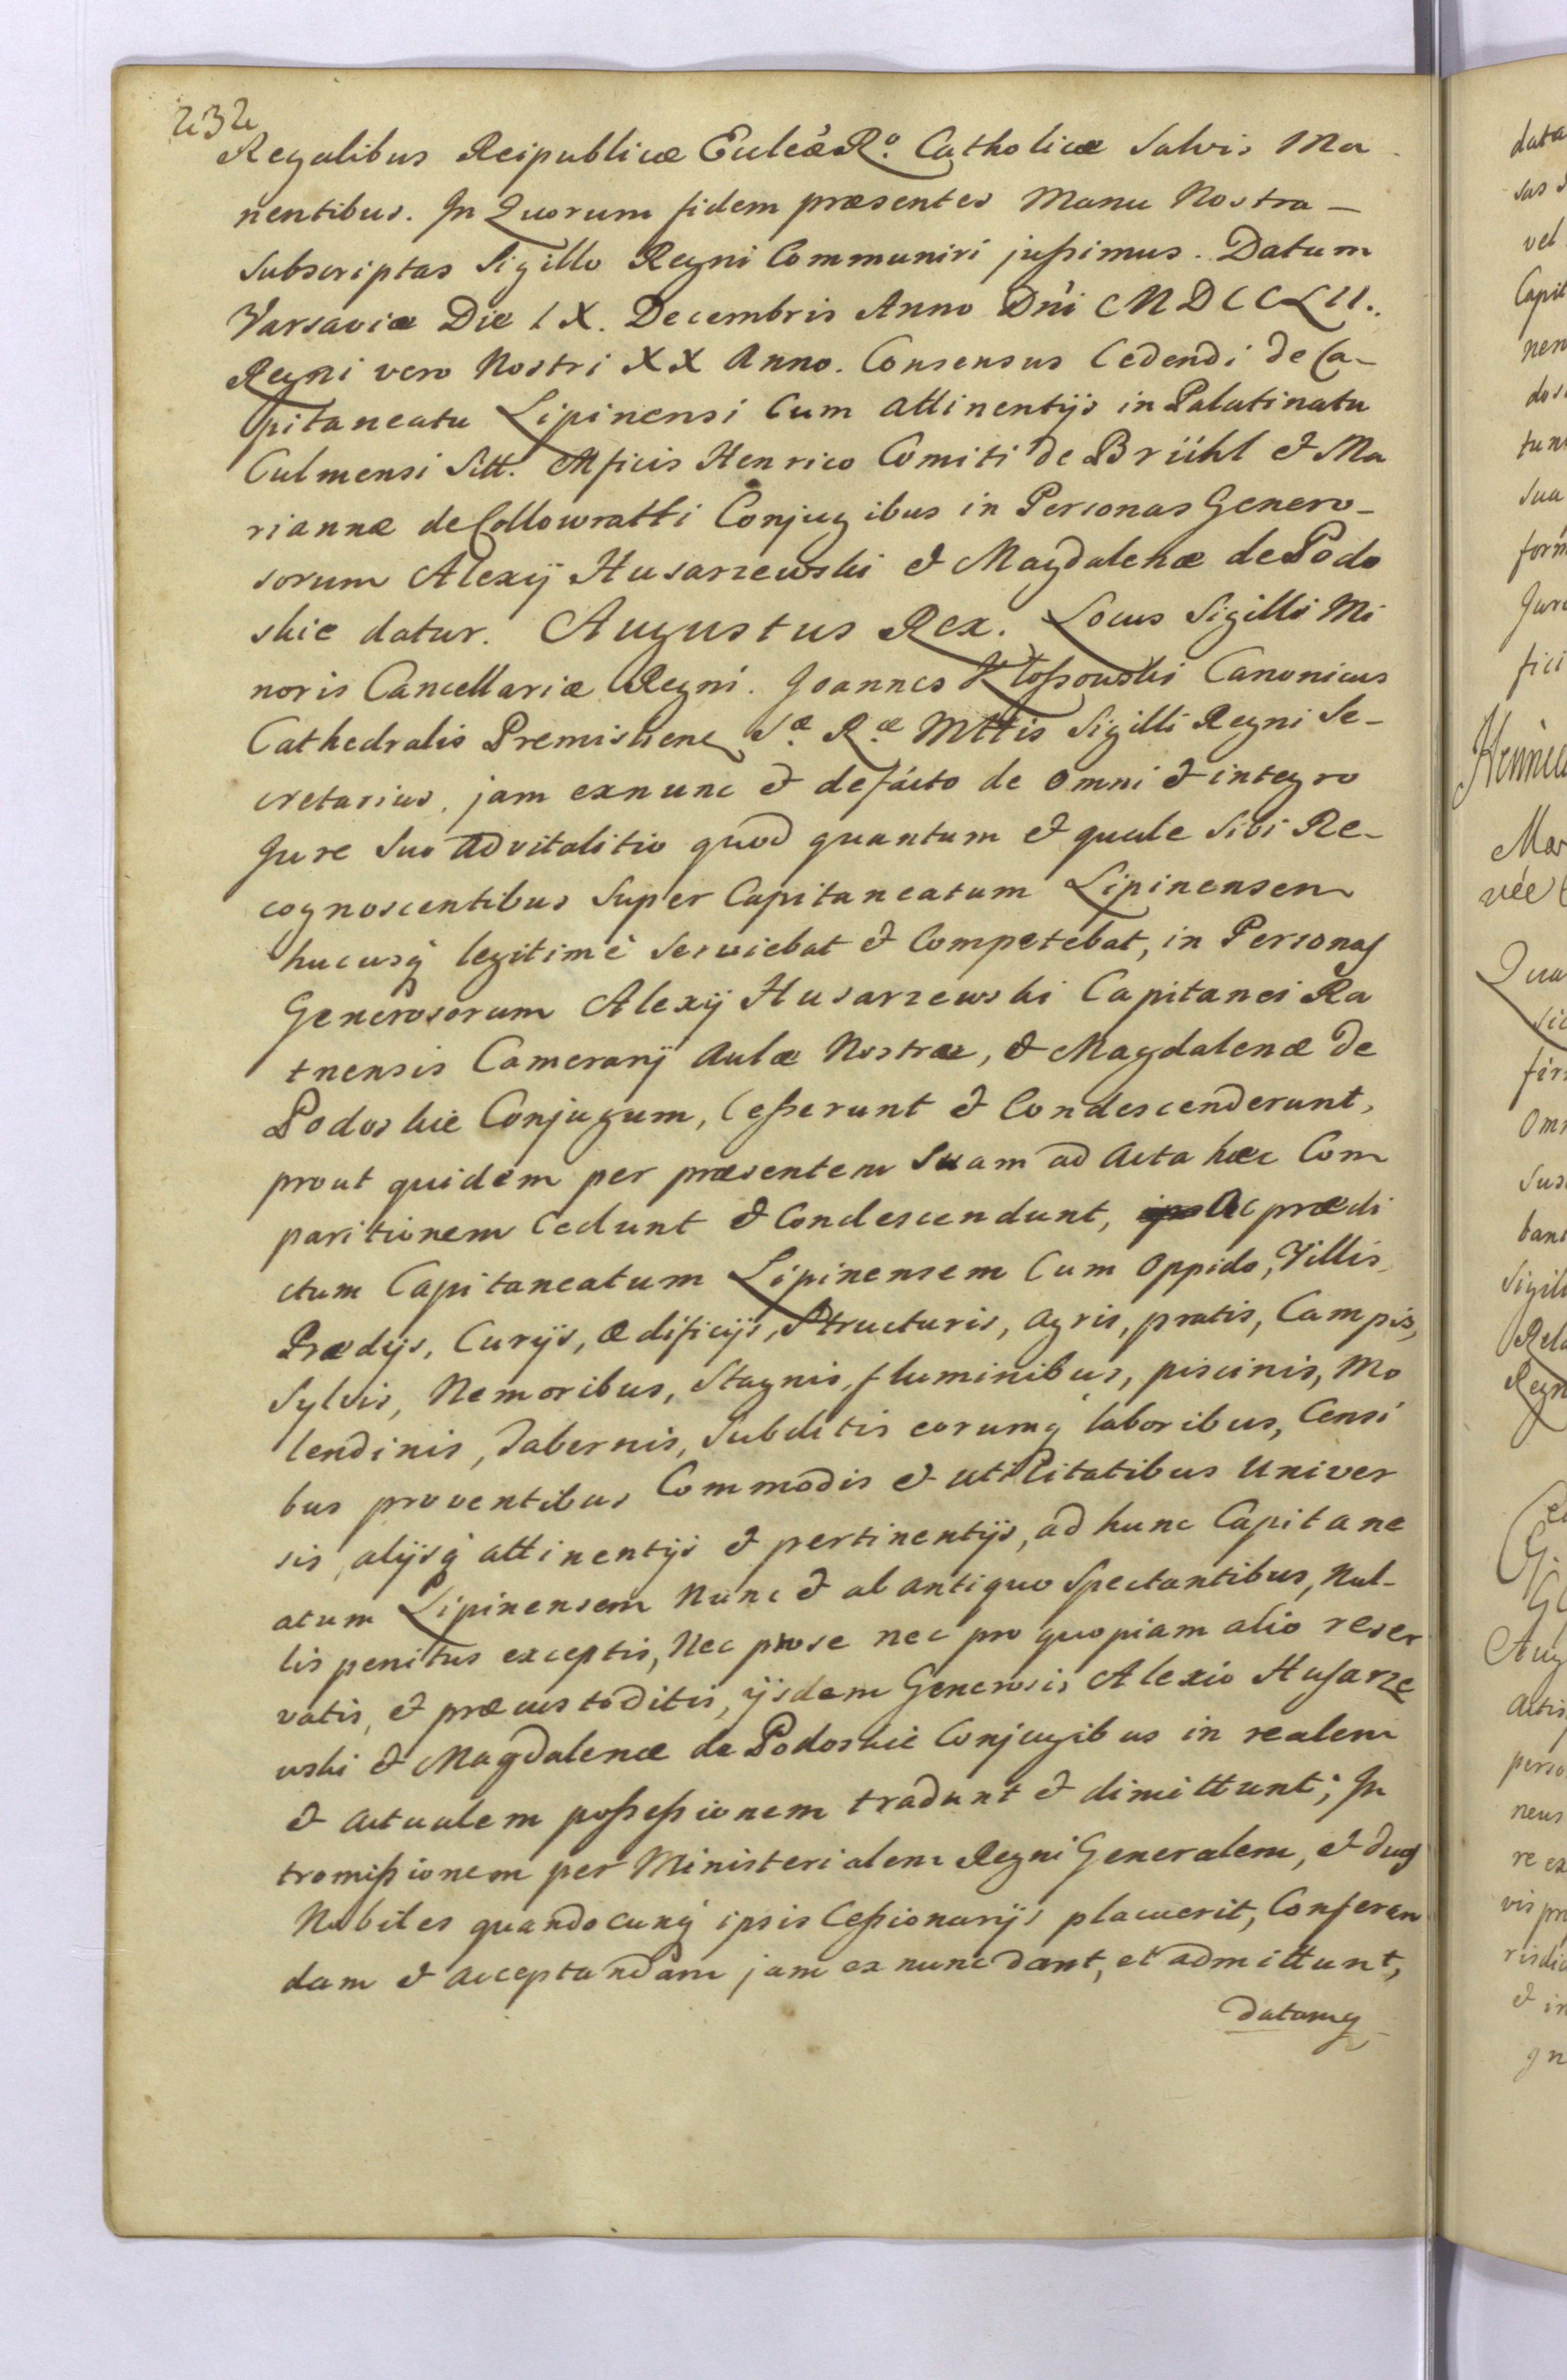 232
Regalibus Reipublicæ Eccleæ Ro. Catholicæ Salvis Ma
nentibus. In Quorum fidem præsentes Manu Nostra —
Subscriptas Sigillo Regni Communiri jußimus. Datum
Varsaviæ Die IX. Decembris Anno Dni MDCCLII.
Regni vero Nostri XX Anno. Consensus Cedendi de Ca-
pitaneatu Lipinensi Cum attinentijs in Palatinatu
Culmensi Sitt. Mficis Henrico Comiti de Brühl & Ma
riannæ de Collowratti Conjugibus in Personas Genero-
sorum Alexij Husarzewski & Magdalenæ de Podo
skie datur. Augustus Rex. Locus Sigilli Mi
noris Cancellariæ Regni. Joannes Kloßowski Canonicus
Cathedralis Premislienς Sæ Ræ Mttis Sigilli Regni Se-
cretarius, jam exnunc & defácto de omni & integro
Jure Suo Advitalitio quod quantum & quale Sibi Re-
cognoscentibus Super Capitaneatum Lipinensem
hucusq́ legitimè Serviebat & Competebat, in Personas
Generosorum Alexij Husarzewski Capitanei Ra
tnensis Camerarij Aulæ Nostræ, & Magdalenæ de
Podoskie Conjugum, Ceßerunt & Condescenderunt,
prout quidem per præsentem Suam ad Acta hæc Com
paritionem Cedunt & Condescendunt, Ac prædi
ctum Capitaneatum Lipinensem Cum Oppido, Villis,
Prædijs, Curijs, Ædificijs, Structuris, Agris, pratis, Campis,
Sylvis, Nemoribus, Stagnis, fluminibus, piscinis, Mo
lendinis, Tabernis, Subditis earumq́ laboribus, Censi
bus proventibus Commodis & utilitatibus Univer
sis, alijsq́ attinentijs & pertinentijs, ad hunc Capitane
atum Lipinensem Nunc & ab antiquo Spectantibus, Nul-
lis penitus exceptis, Nec prose nec pro quopiam alio reser
vatis, & præcustoditis, ijsdem Generosis Alexio Husarze
wski & Magdalenæ de Podoskie Conjugibus in realem
& Actualem poßeßionem tradunt & dimittunt; In
tromißionem per Ministerialem Regni Generalem, & duos
Nobiles quandocunq́ ipsis Ceßionarijs placuerit, Conferen
dam & acceptandam jam ex nunc dant, et admittunt,
datamq́